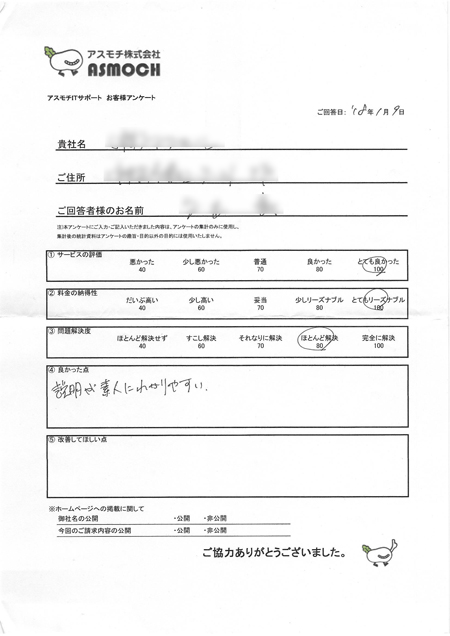 アスモチ株式会社
ASMOCH
アスモチITサポート お客様アンケート
ご回答日: '18年1月9日
貴社名
ご住所
ご回答者様のお名前
注)本アンケートにご入力・ご記入いただきました内容は、アンケートの集計のみに使用し、
集計後の統計資料はアンケートの趣旨・目的以外の目的には使用いたしません。
① サービスの評価
悪かった 少し悪かった 普通 良かった とても良かった
40 60 70 80 100
② 料金の納得性
だいぶ高い 少し高い 妥当 少しリーズナブル とてもリーズナブル
40 60 70 80 100
③ 問題解決度
ほとんど解決せず すこし解決 それなりに解決 ほとんど解決 完全に解決
40 60 70 80 100
④ 良かった点
説明が素人にわかりやすい.
⑤ 改善してほしい点
※ホームページへの掲載に関して
御社名の公開 ・公開 ・非公開
今回のご請求内容の公開 ・公開 ・非公開
ご協力ありがとうございました。